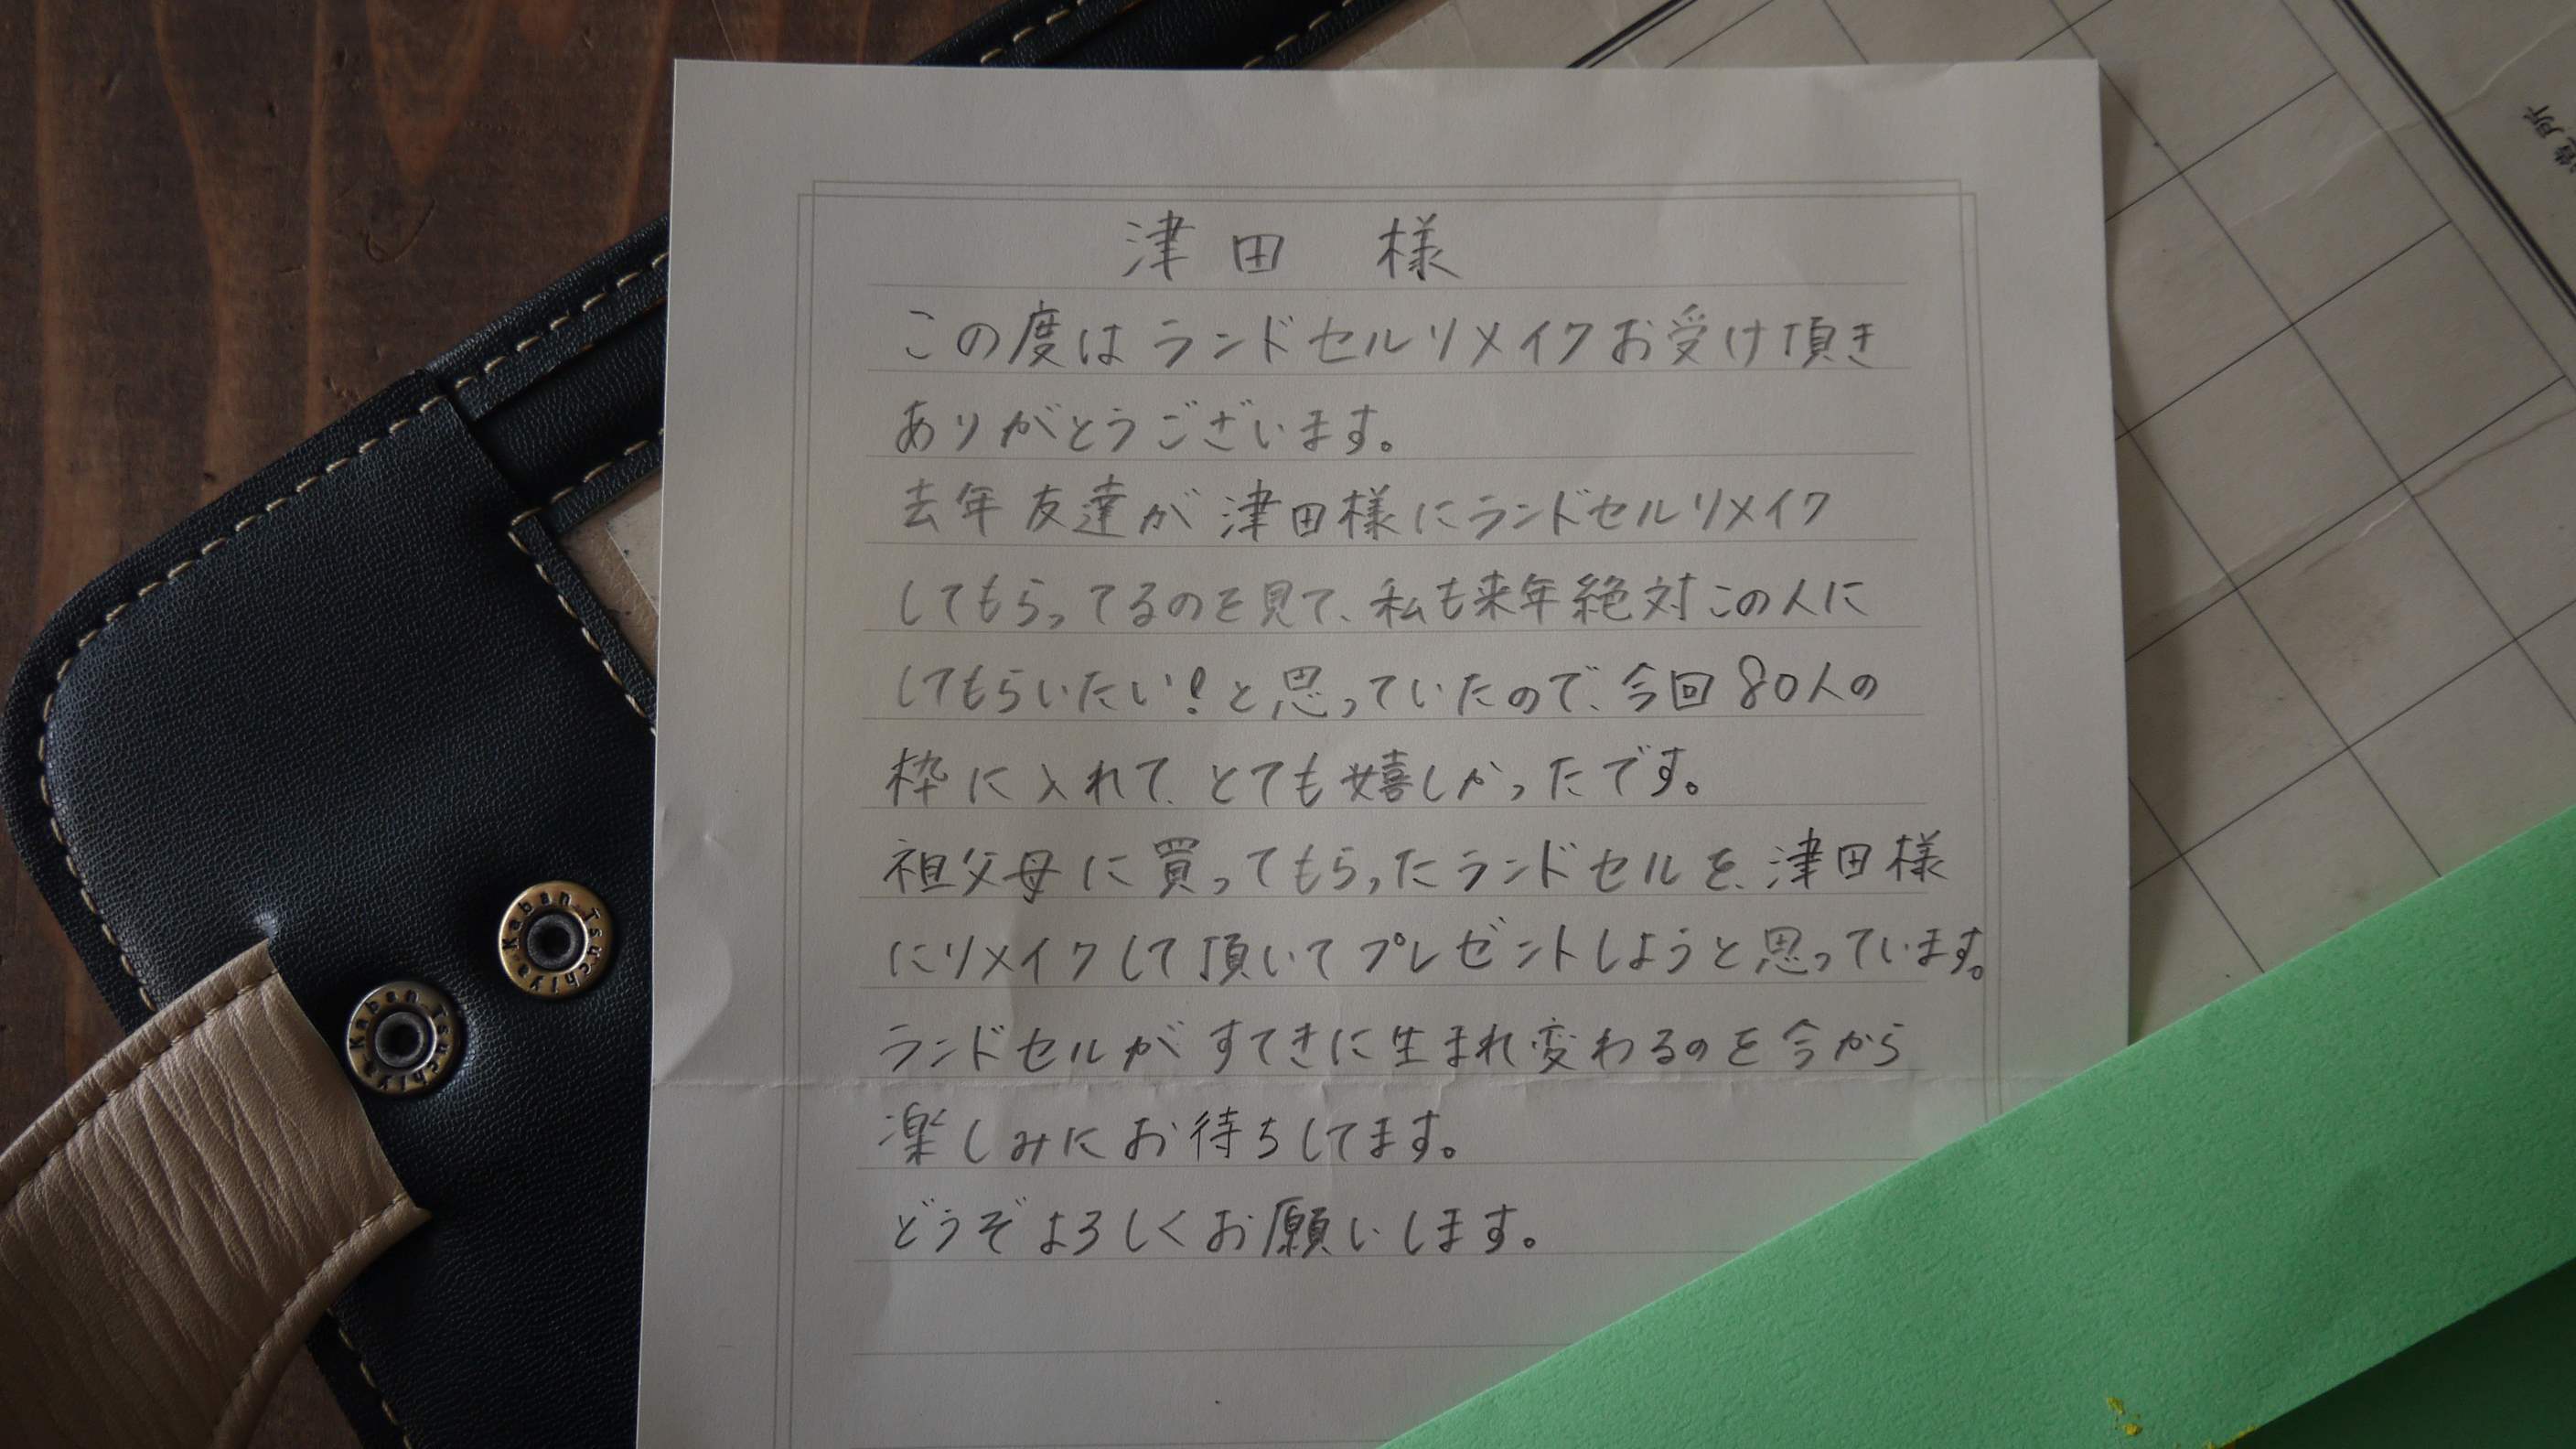 津田 様
この度はランドセルリメイクお受け頂き
ありがとうございます。
去年友達が津田様にランドセルリメイク
してもらってるのを見て、私も来年絶対この人に
してもらいたい!と思っていたので、今回80人の
枠に入れて、とても嬉しかったです。
祖父母に買ってもらったランドセルを、津田様
にリメイクして頂いてプレゼントしようと思っています。
ランドセルがすてきに生まれ変わるのを今から
楽しみにお待ちしてます。
どうぞよろしくお願いします。
Kaban Tsuchiya
Kaban Tsuchiya